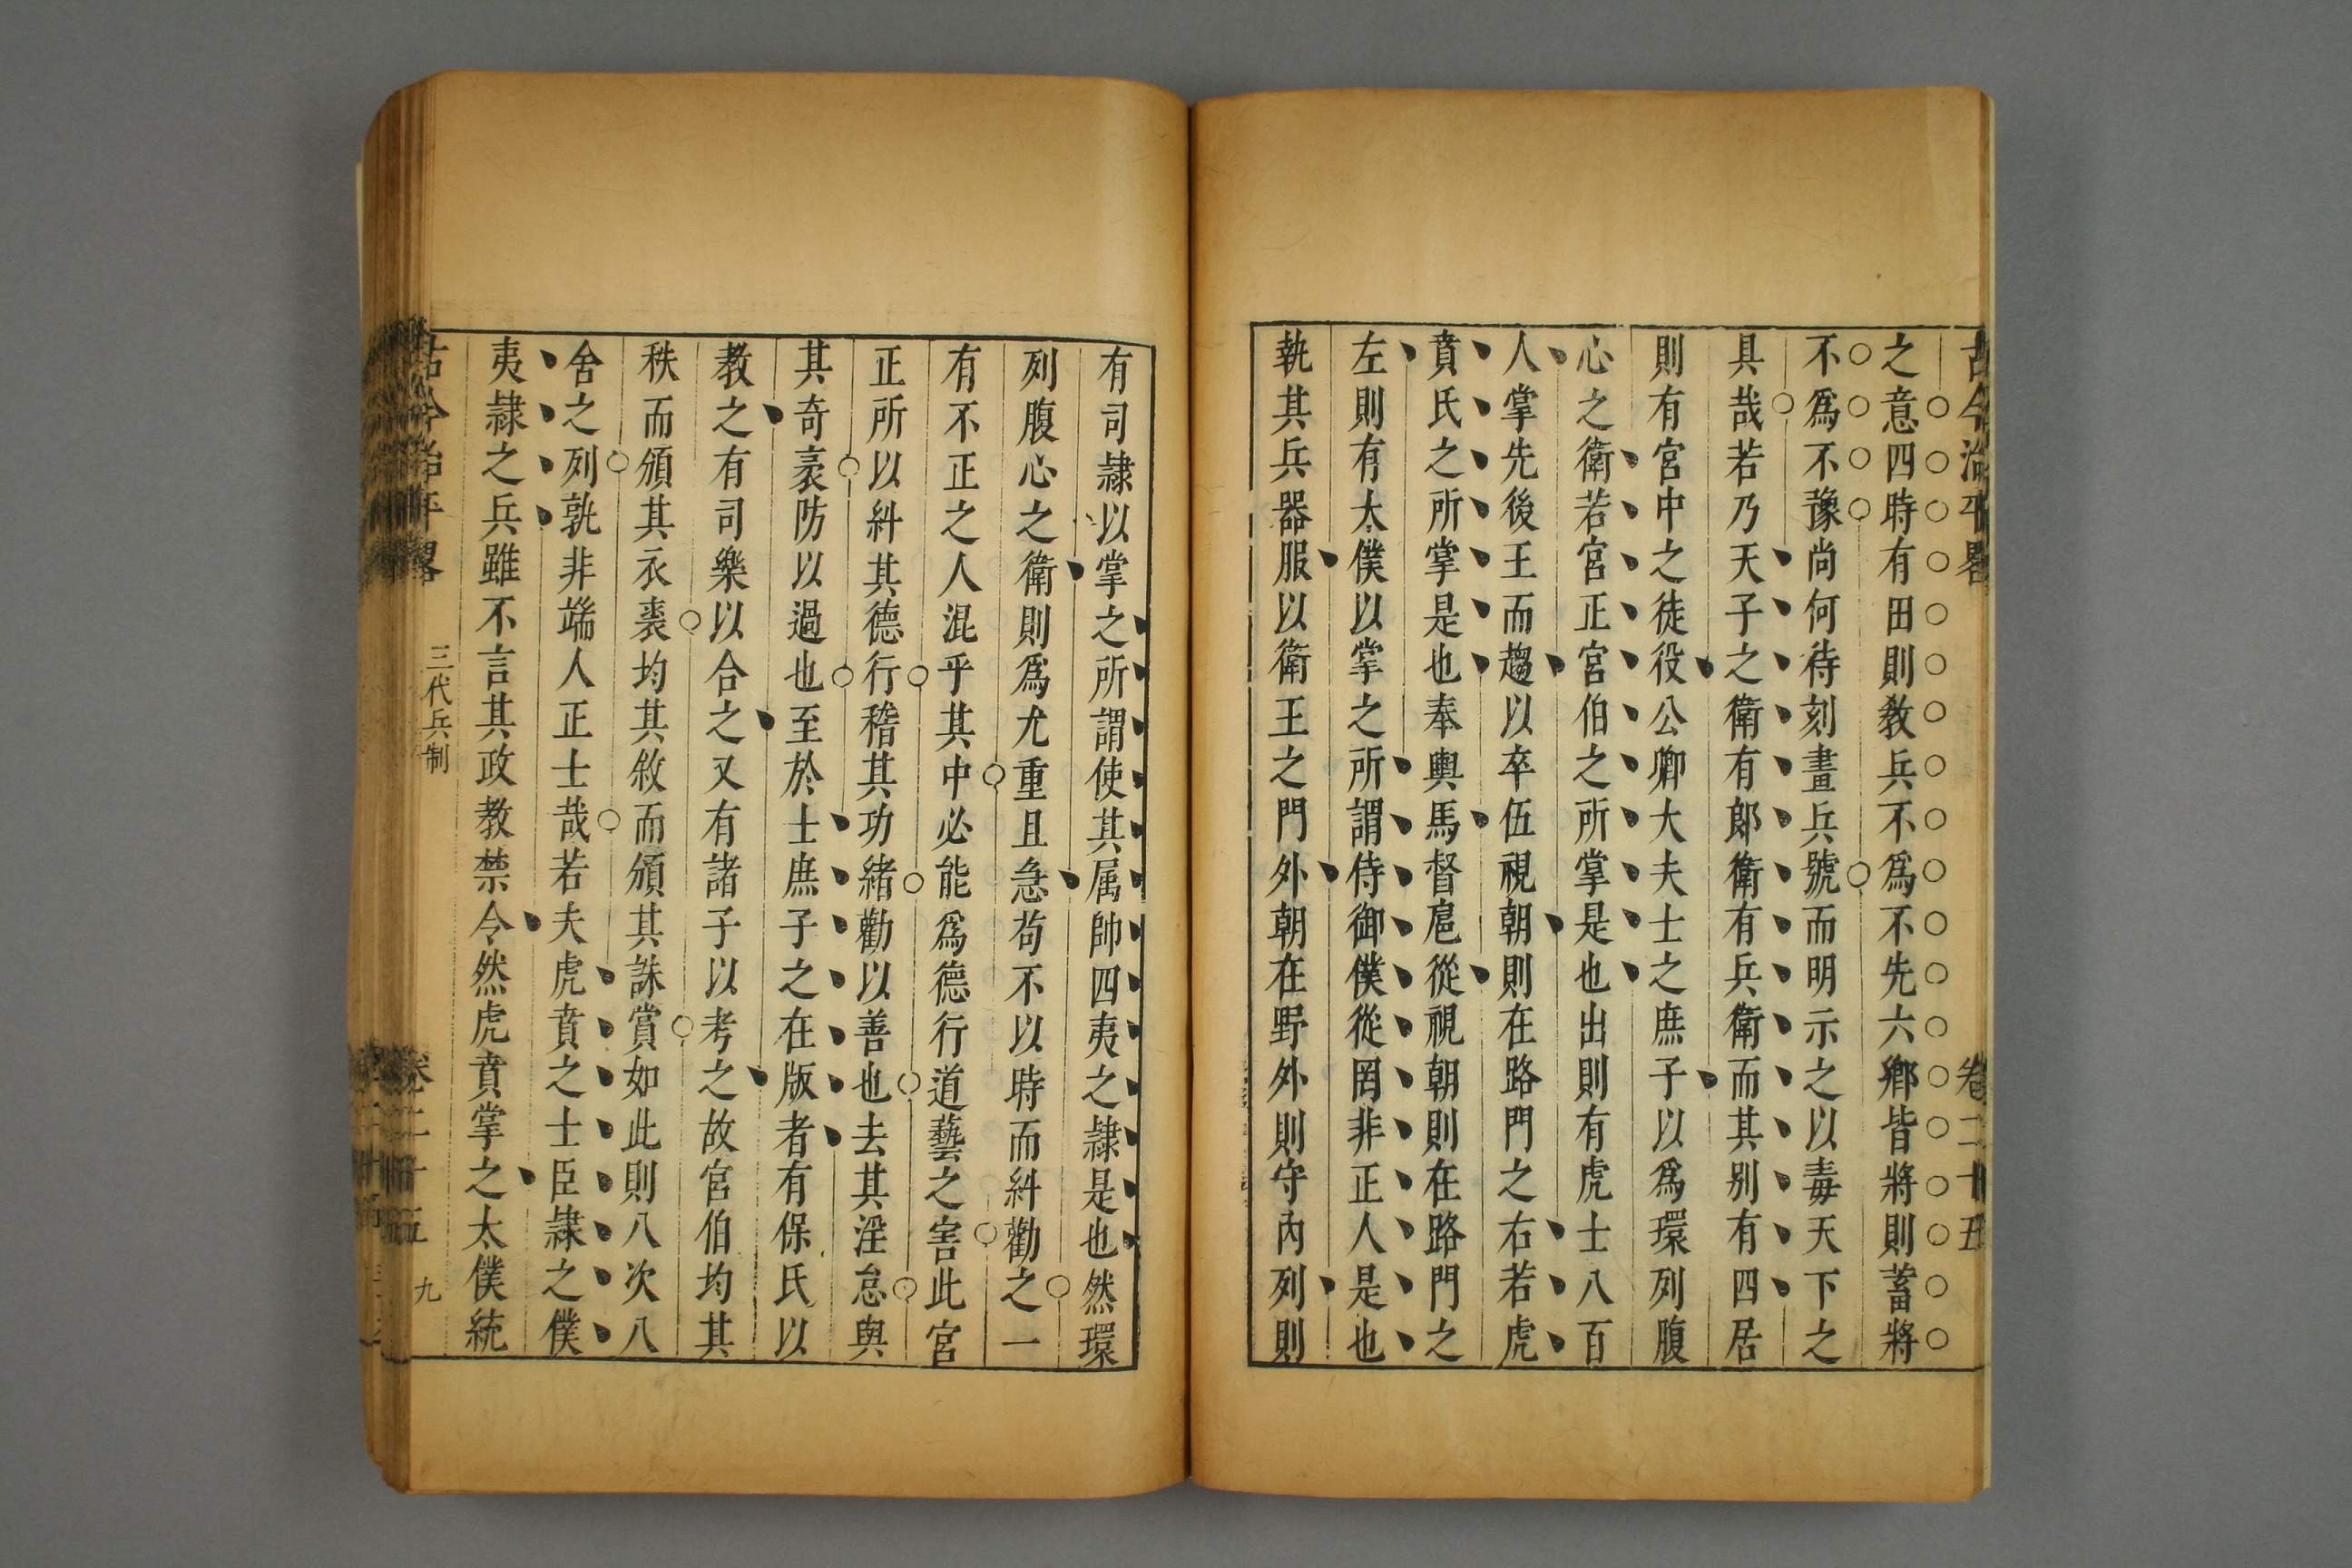 古今治平畧 卷二十五
之意四時有田則教兵不爲不先六鄉皆將則蓄將
不爲不豫尚何待刻畫兵號而明示之以毒天下之
具哉若乃天子之衛有郎衛有兵衛而其别有四居
則有宮中之徒役公卿大夫士之庶子以爲環列腹
心之衛若宮正宮伯之所掌是也出則有虎士八百
人掌先後王而趨以卒伍視朝則在路門之右若虎
賁氏之所掌是也奉輿馬督扈從視朝則在路門之
左則有太僕以掌之所謂侍御僕從罔非正人是也
執其兵器服以衛王之門外朝在野外則守內列則
有司隷以掌之所謂使其属帥四夷之隷是也然環
列腹心之衛則爲尤重且急苟不以時而糾勸之一
有不正之人混乎其中必能爲德行道藝之害此宮
正所以糾其德行稽其功緒勸以善也去其淫怠與
其奇衺防以過也至於士庶子之在版者有保氏以
教之有司樂以合之又有諸子以考之故宮伯均其
秩而頒其衣裘均其敘而頒其誅賞如此則八次八
舍之列孰非端人正士哉若夫虎賁之士臣隷之僕
夷隷之兵雖不言其政教禁令然虎賁掌之太僕統
古今治平畧 三代兵制 卷二十五 九